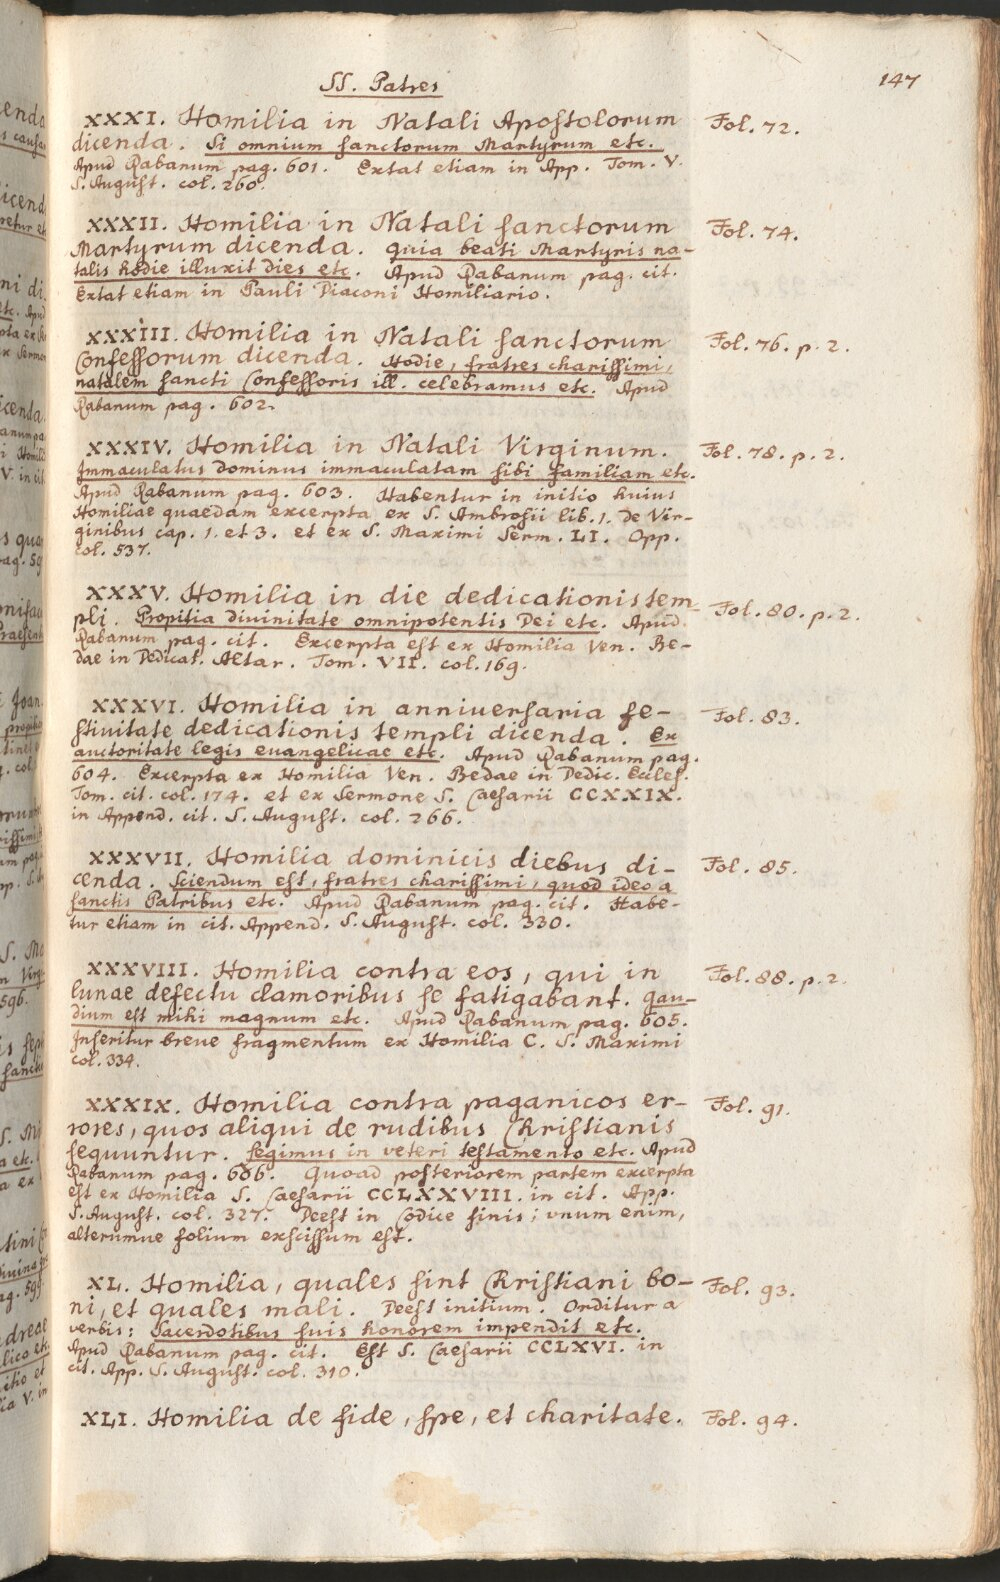 SS. Patres
147
XXXI. Homilia in Natali Apostolorum
dicenda. Si omnium sanctorum Martyrum etc.
Apud Rabanum pag. 601. Extat etiam in App. Tom. V.
S. August. col. 260.
Fol. 72.
XXXII. Homilia in Natali sanctorum
Martyrum dicenda. Quia beati Martyris na-
talis hodie illuxit dies etc. Apud Rabanum pag. cit.
Extat etiam in Pauli Diaconi Homiliario.
Fol. 74.
XXXIII. Homilia in Natali sanctorum
Confessorum dicenda. Hodie, fratres charissimi,
natalem sancti Confessoris ill. celebramus etc. Apud
Rabanum pag. 602.
Fol. 76. p. 2.
XXXIV. Homilia in Natali Virginum.
Immaculatus dominus immaculatam sibi familiam etc.
Apud Rabanum pag. 603. Habentur in initio huius
Homiliae quaedam excerpta ex S. Ambrosii lib. 1. de Vir-
ginibus cap. 1. et 3. et ex S. Maximi Serm. LI. Opp.
col. 537.
Fol. 78. p. 2.
XXXV. Homilia in die dedicationis tem-
pli. Propitia divinitate omnipotentis Dei etc. Apud
Rabanum pag. cit. Excerpta est ex Homilia Ven. Be-
dae in Dedicat. Altar. Tom. VII. col. 169.
Fol. 80. p. 2.
XXXVI. Homilia in anniuersaria fe-
stiuitate dedicationis templi dicenda. Ex
auctoritate legis euangelicae etc. Apud Rabanum pag.
604. Excerpta ex Homilia Ven. Bedae in Dedic. Eccles.
Tom. cit. col. 174. et ex Sermone S. Caesarii CCXXIX.
in Append. cit. S. August. col. 266.
Fol. 83.
XXXVII. Homilia dominicis diebus di-
cenda. Sciendum est, fratres charissimi, quod ideo a
sanctis Patribus etc. Apud Rabanum pag. cit. Habe-
tur etiam in cit. Append. S. August. col. 330.
Fol. 85.
XXXVIII. Homilia contra eos, qui in
lunae defectu clamoribus se fatigabant. Gau-
dium est mihi magnum etc. Apud Rabanum pag. 605.
Inseritur breue fragmentum ex Homilia C. S. Maximi
col. 334.
Fol. 88. p. 2.
XXXIX. Homilia contra paganicos er-
rores, quos aliqui de rudibus Christianis
sequuntur. Legimus in veteri testamento etc. Apud
Rabanum pag. 606. Quoad posteriorem partem excerpta
est ex Homilia S. Caesarii CCLXXVIII. in cit. App.
S. August. col. 327. Deest in Codice finis; vnum enim,
alterumue folium exscissum est.
Fol. 91.
XL. Homilia, quales sint Christiani bo-
ni, et quales mali. Deest initium. Orditur a
verbis: Sacerdotibus suis honorem impendit etc.
Apud Rabanum pag. cit. Est S. Caesarii CCLXVI. in
cit. App. S. August. col. 310.
Fol. 93.
XLI. Homilia de fide, spe, et charitate.
Fol. 94.